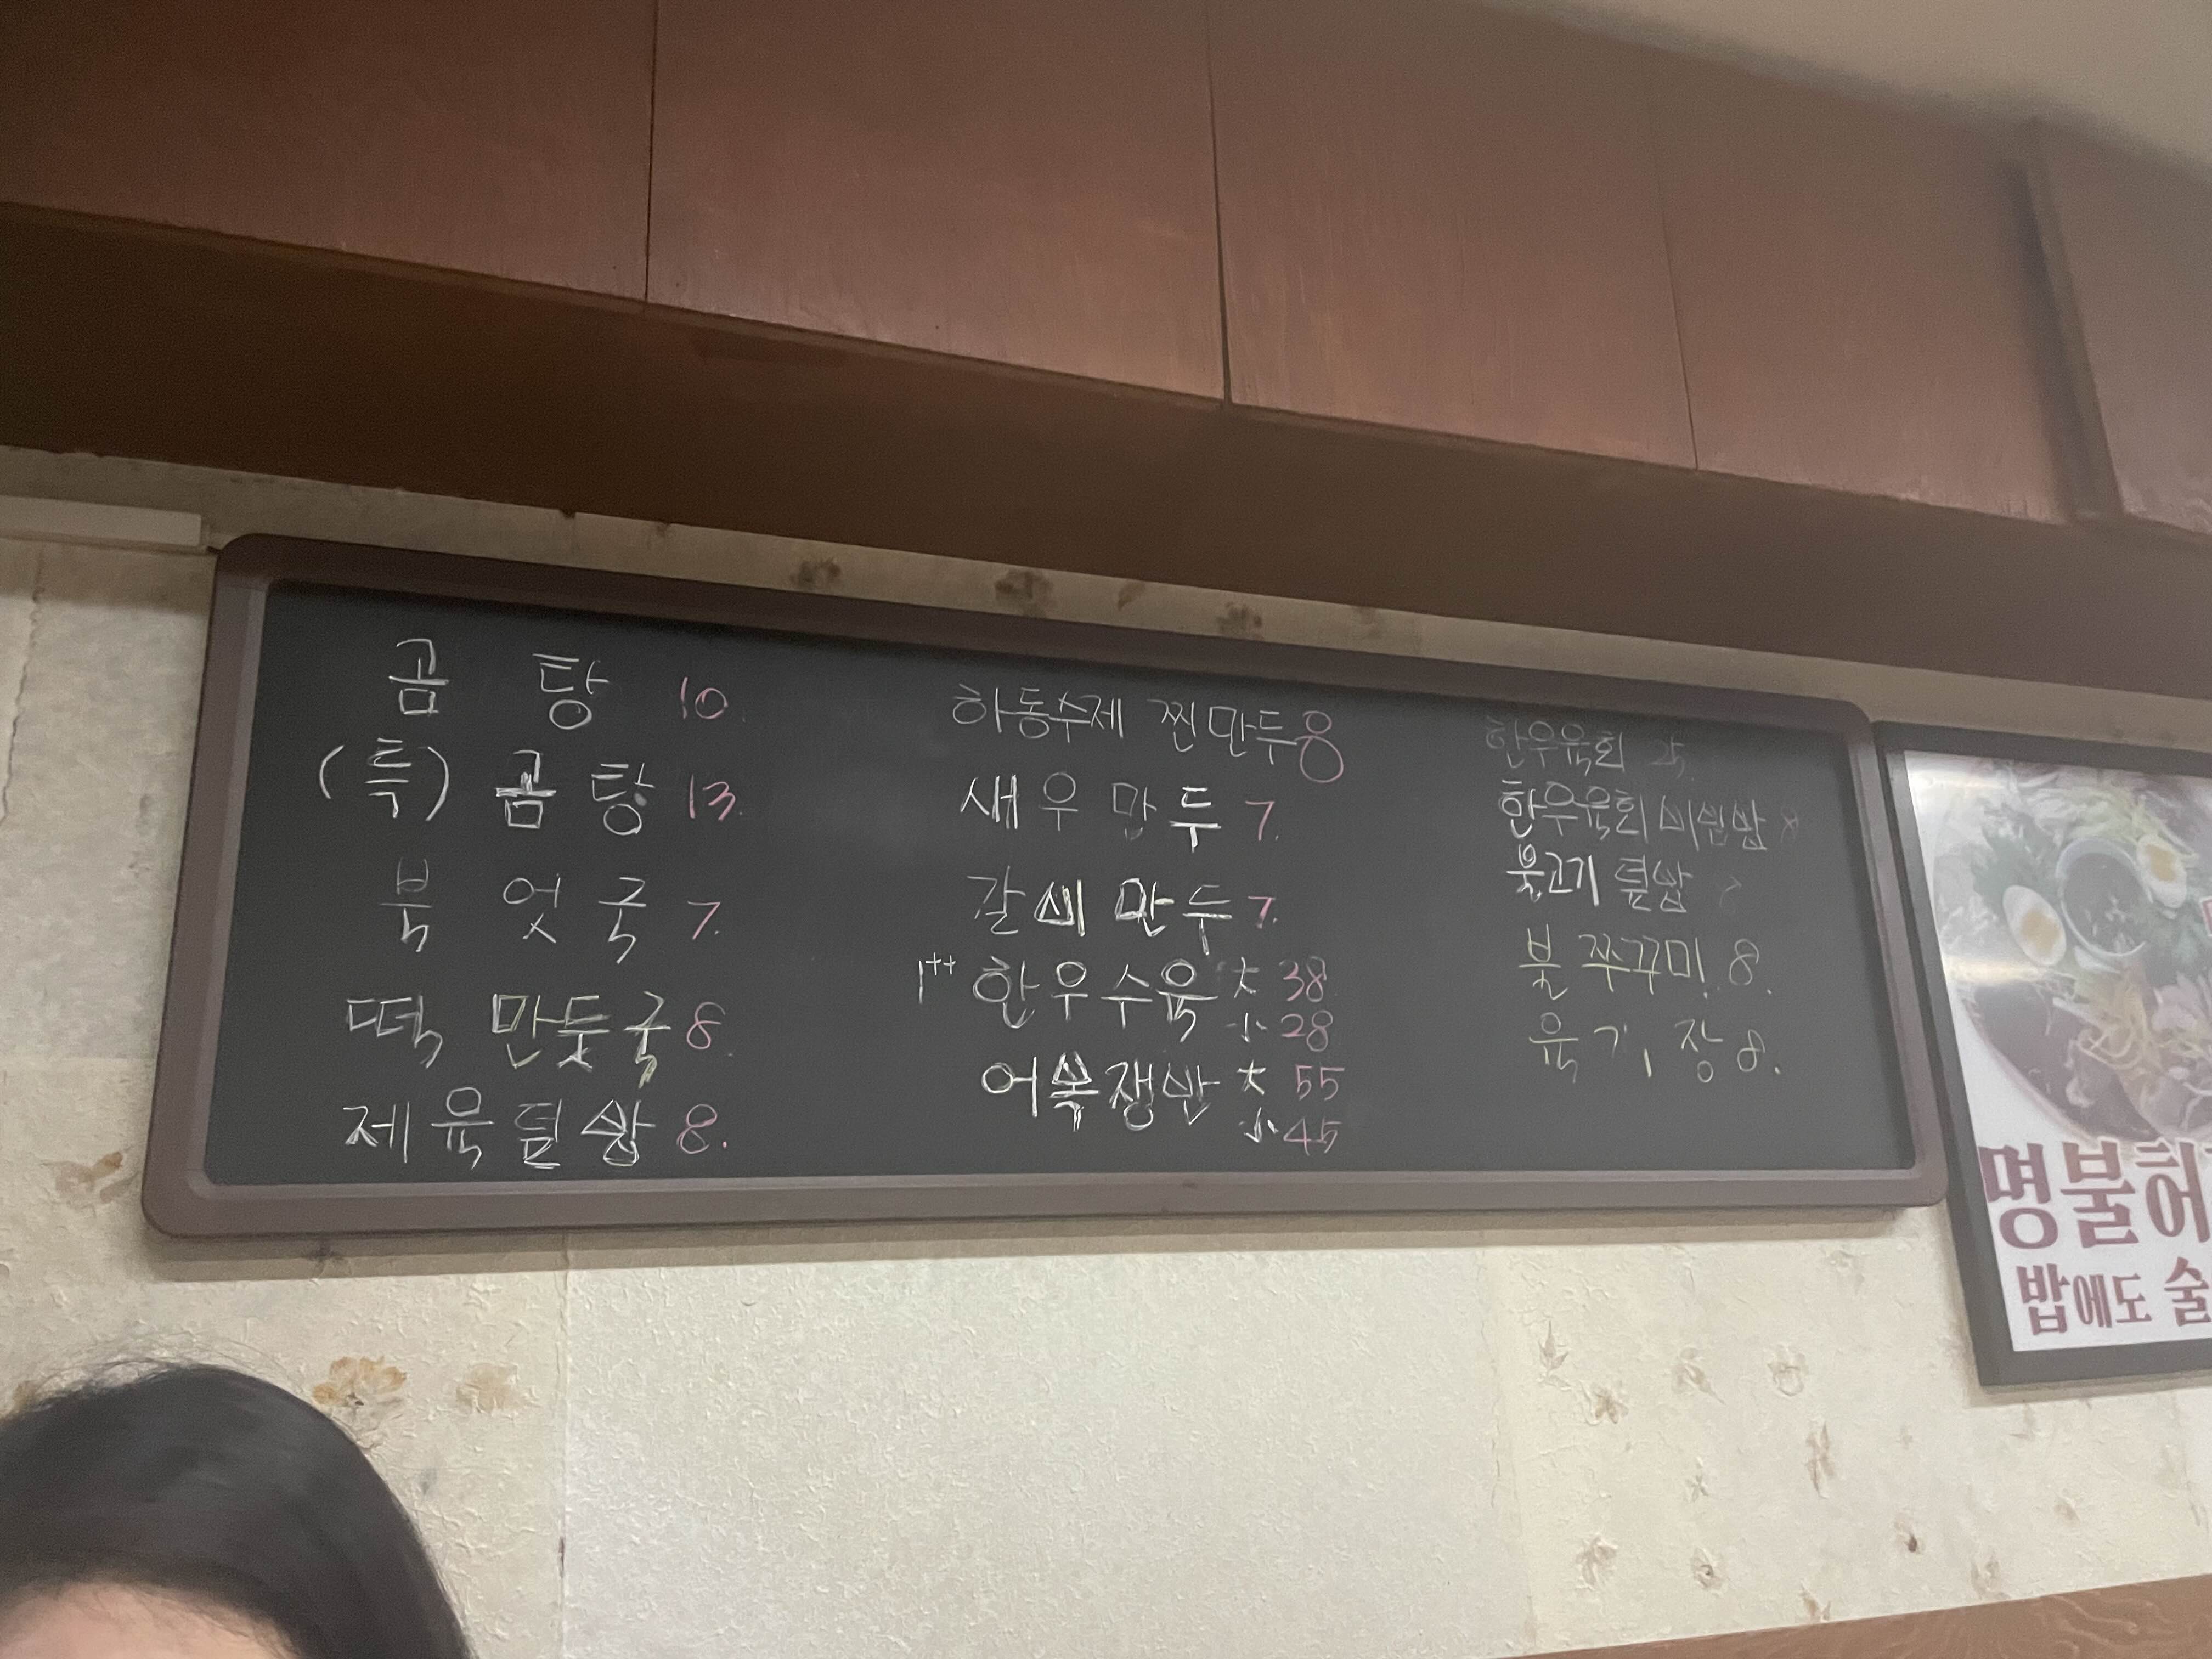 곰탕 10.
(특) 곰탕 13.
북엇국 7.
떡 만둣국 8.
제육덮밥 8.
하동수제 찐만두 8
새우만두 7.
갈비만두 7.
1++ 한우수육 大 38
小 28
어복쟁반 大 55
小 45
한우육회
한우육회 비빔밥
불고기 덮밥
불 쭈꾸미 8.
육개장 8.
명불허
밥에도 술